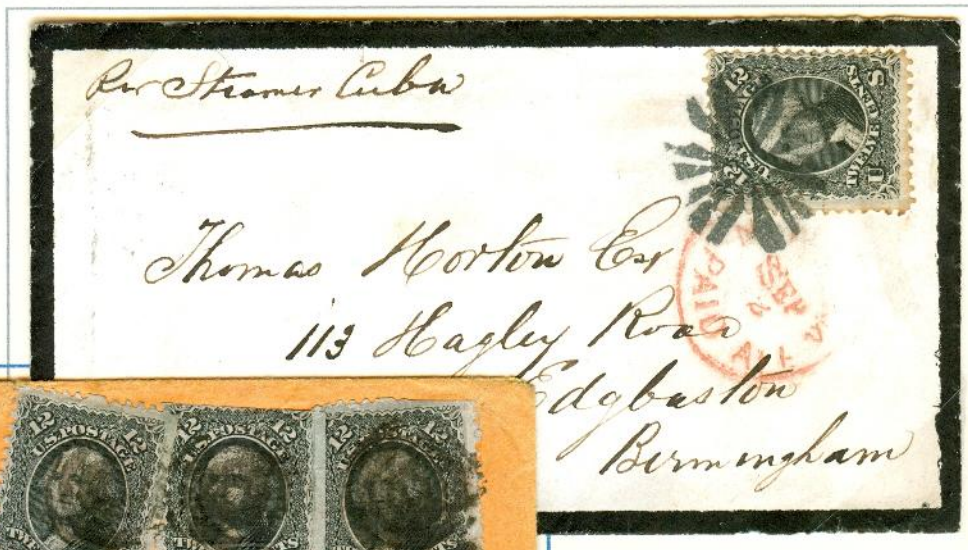 Per Steamer Cuba
12 U.S. POSTAGE 12
TWELVE CENTS
U S
Thomas Horton Esqr
113 Hagley Road
Edgbaston
Birmingham
PAID ALL
SEP
2
12 12
U.S. POSTAGE
12 12
U.S. POSTAGE
12 12
U.S. POSTAGE